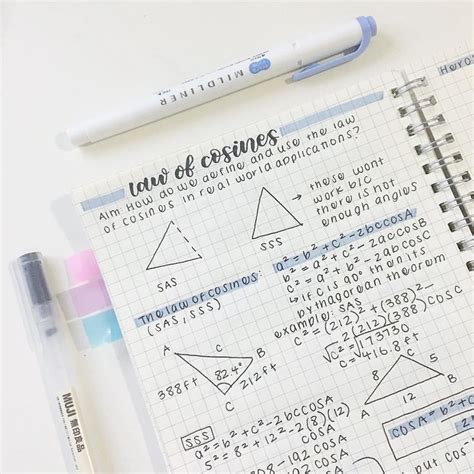 MILDLINER
Hero
law of cosines
Aim: How do we define and use the law
of cosines in real world applications?
SAS
SSS
these wont
work b/c
there is not
enough angles
The law of cosines:
(SAS, SSS)
a² = b² + c² - 2bc cosA
b² = a² + c² - 2ac cosB
c² = a² + b² - 2ab cosC
↳ if C is 90° then its
pythagorean theorem
example: SAS
c² = (212)² + (388)² -
2(212)(388) cosC
√c² = √173730
c = 416.8 ft
A
C
B
82.4°
388ft
212ft
C
8
5
A
12
B
SSS
a² = b² + c² - 2bc cosA
5² = 8² + 12² - 2(8)(12)
cosA
cosA =
MUJI 無印良品